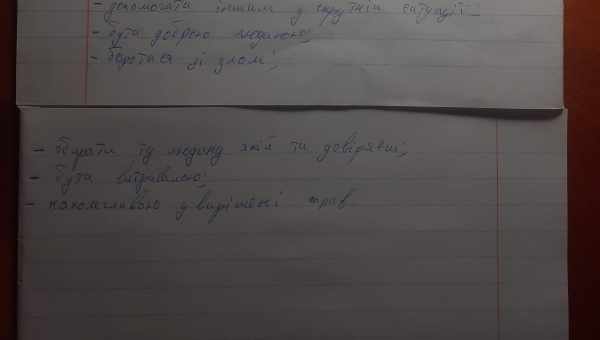 - допомогати іншим у скрутній ситуації
- бути доброю людиною;
- боротися зі злом;
- обирати ту людину якій ти довіряєш;
- бути витривалою;
- наполегливою у вирішені справ.